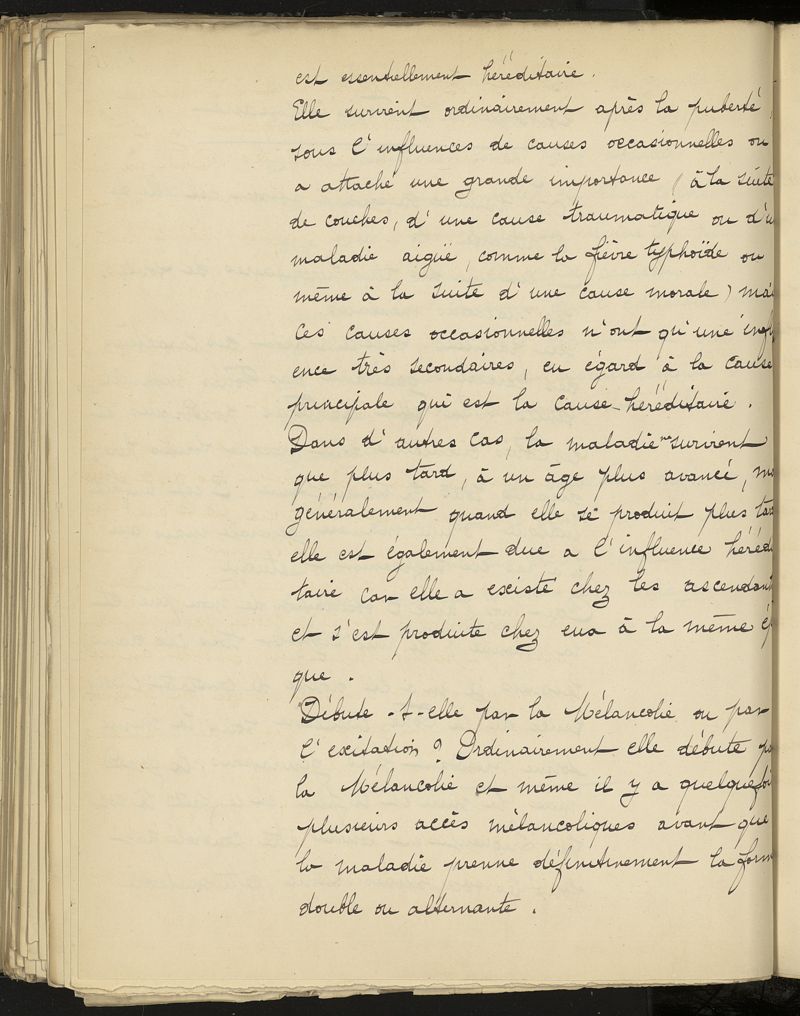 est essentiellement héréditaire.
Elle survient ordinairement après la puberté,
sous l'influences de causes occasionnelles on
a attaché une grande importance (à la suite
de couches, d'une cause traumatique ou d'u
maladie aigüe, comme la fièvre typhoïde ou
même à la suite d'une cause morale) mai
ces causes occasionnelles n'ont qu'une infl
ence très secondaires, eu égard à la cause
principale qui est la cause héréditaire.
Dans d'autres cas, la maladie ne survient
que plus tard, à un âge plus avancé, ma
généralement quand elle se produit plus tar
elle est également due a l'influence héréd
taire car elle a existé chez les ascendant
et s'est produite chez eux à la même ép
que.
Débute-t-elle par la Mélancolie ou par
l'exitation? Ordinairement elle débute pa
la Mélancolie et même il y a quelquefoi
plusieurs accès mélancoliques avant que
la maladie prenne définitivement la form
double ou alternante.